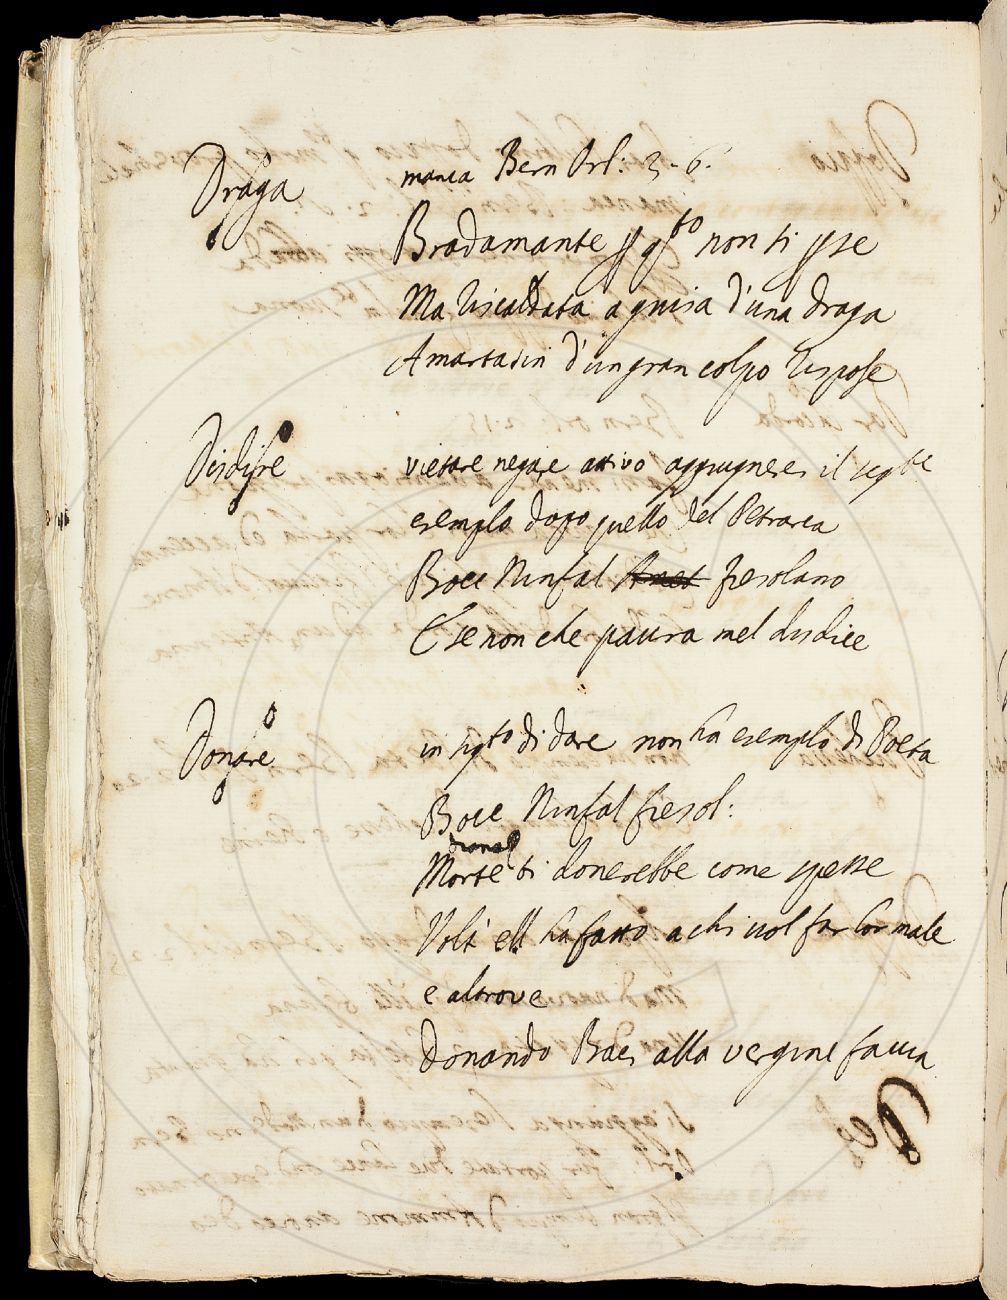 Draga manca Bern Orl: 3-6.
Bradamante p qto non si pse
Ma riscaldata a guisa d'una draga
A martasin d'un gran colpo rispose
Disdire vietare negare attivo aggiugnere il segte
esemplo dopo quello del Petrarca
Bocc Ninfal Amet fiesolano
E se non che paura mel disdice
Donare in sigto di dare non ha esemplo di Poeta
Bocc Ninfal fiesol:
Morte ti donerebbe come spesse
Volt' ell' ha fatto a chi vol far lor male
e altrove
Donando Baci alla vergine faccia
Dez